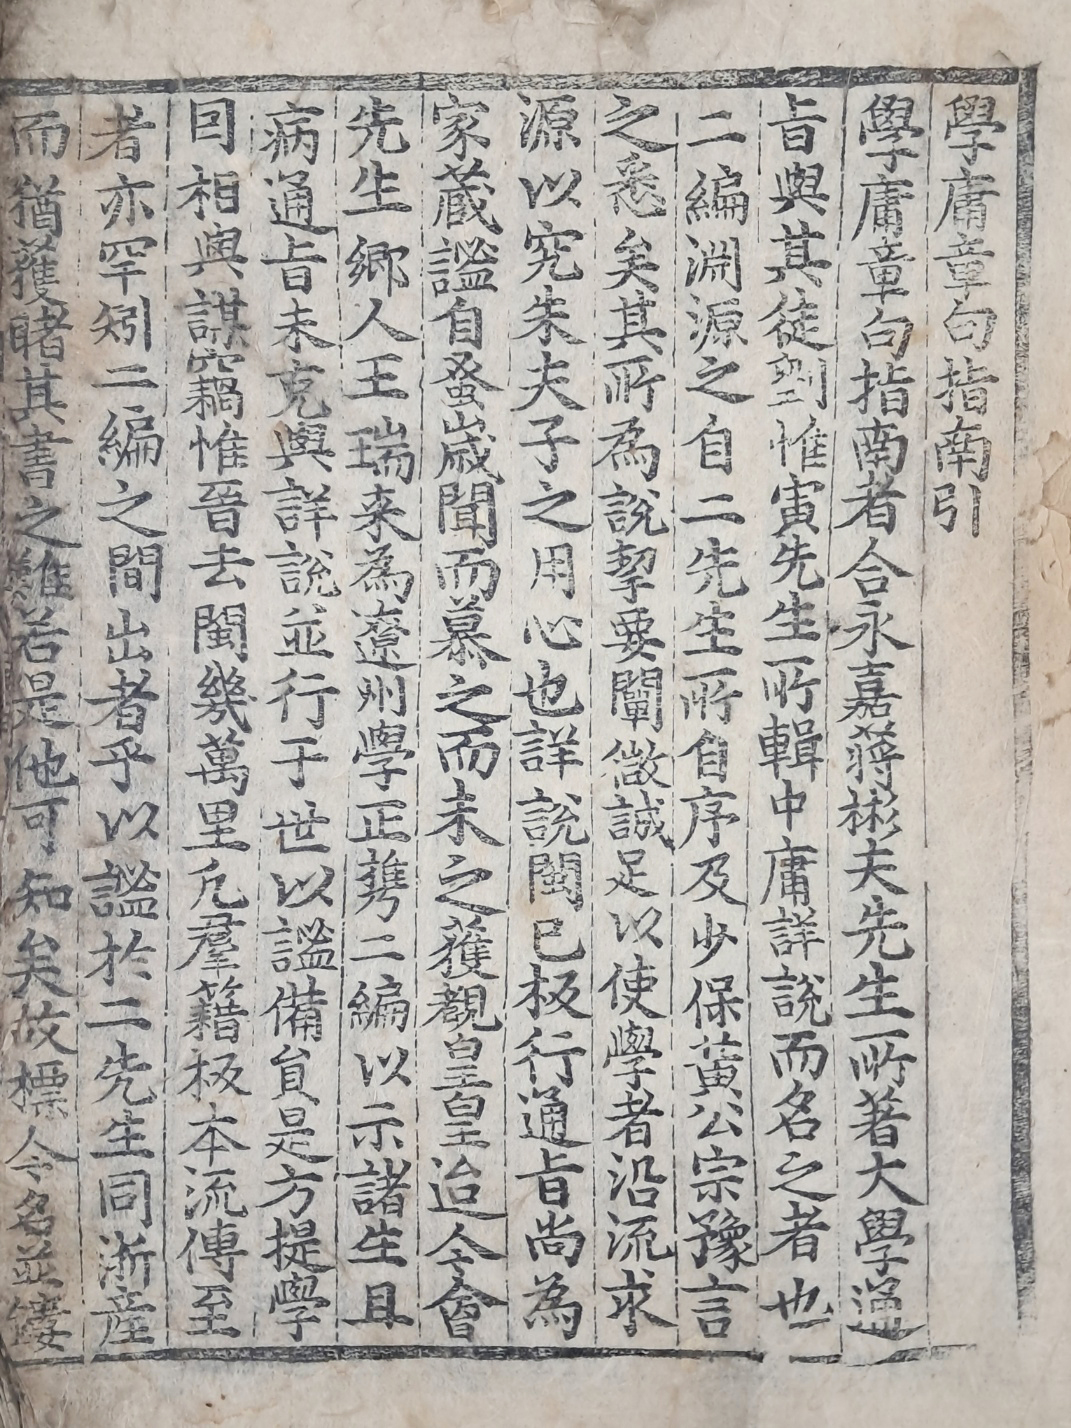 學庸章句指南引
學庸章句指南者合永嘉蔣彬夫先生所著大學通
旨與其徒劉惟寅先生所輯中庸詳說而名之者也
二編淵源之自二先生所自序及少保黃公宗豫言
之悉矣其所為說挈要闡微誠足以使學者沿流求
源以究朱夫子之用心也詳說閩已板行通旨尚為
家蔵謐自蚤歲聞而慕之而未之獲覩皇皇迨今會
先生鄉人王瑞来為遼州學正携二編以示諸生且
病通旨未克與詳說並行于世以謐備貟是方提學
囙相與謀竊惟晉去閩幾萬里凡羣籍板本流傳至
者亦罕矧二編之間出者乎以謐於二先生同浙産
而猶獲睹其書之難若是他可知矣故標今名並鋟